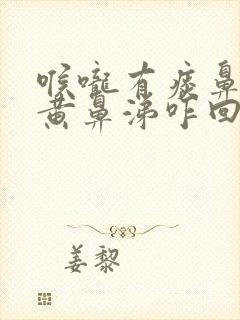 喉咙有痰鼻
黄鼻涕咋回
姜黎